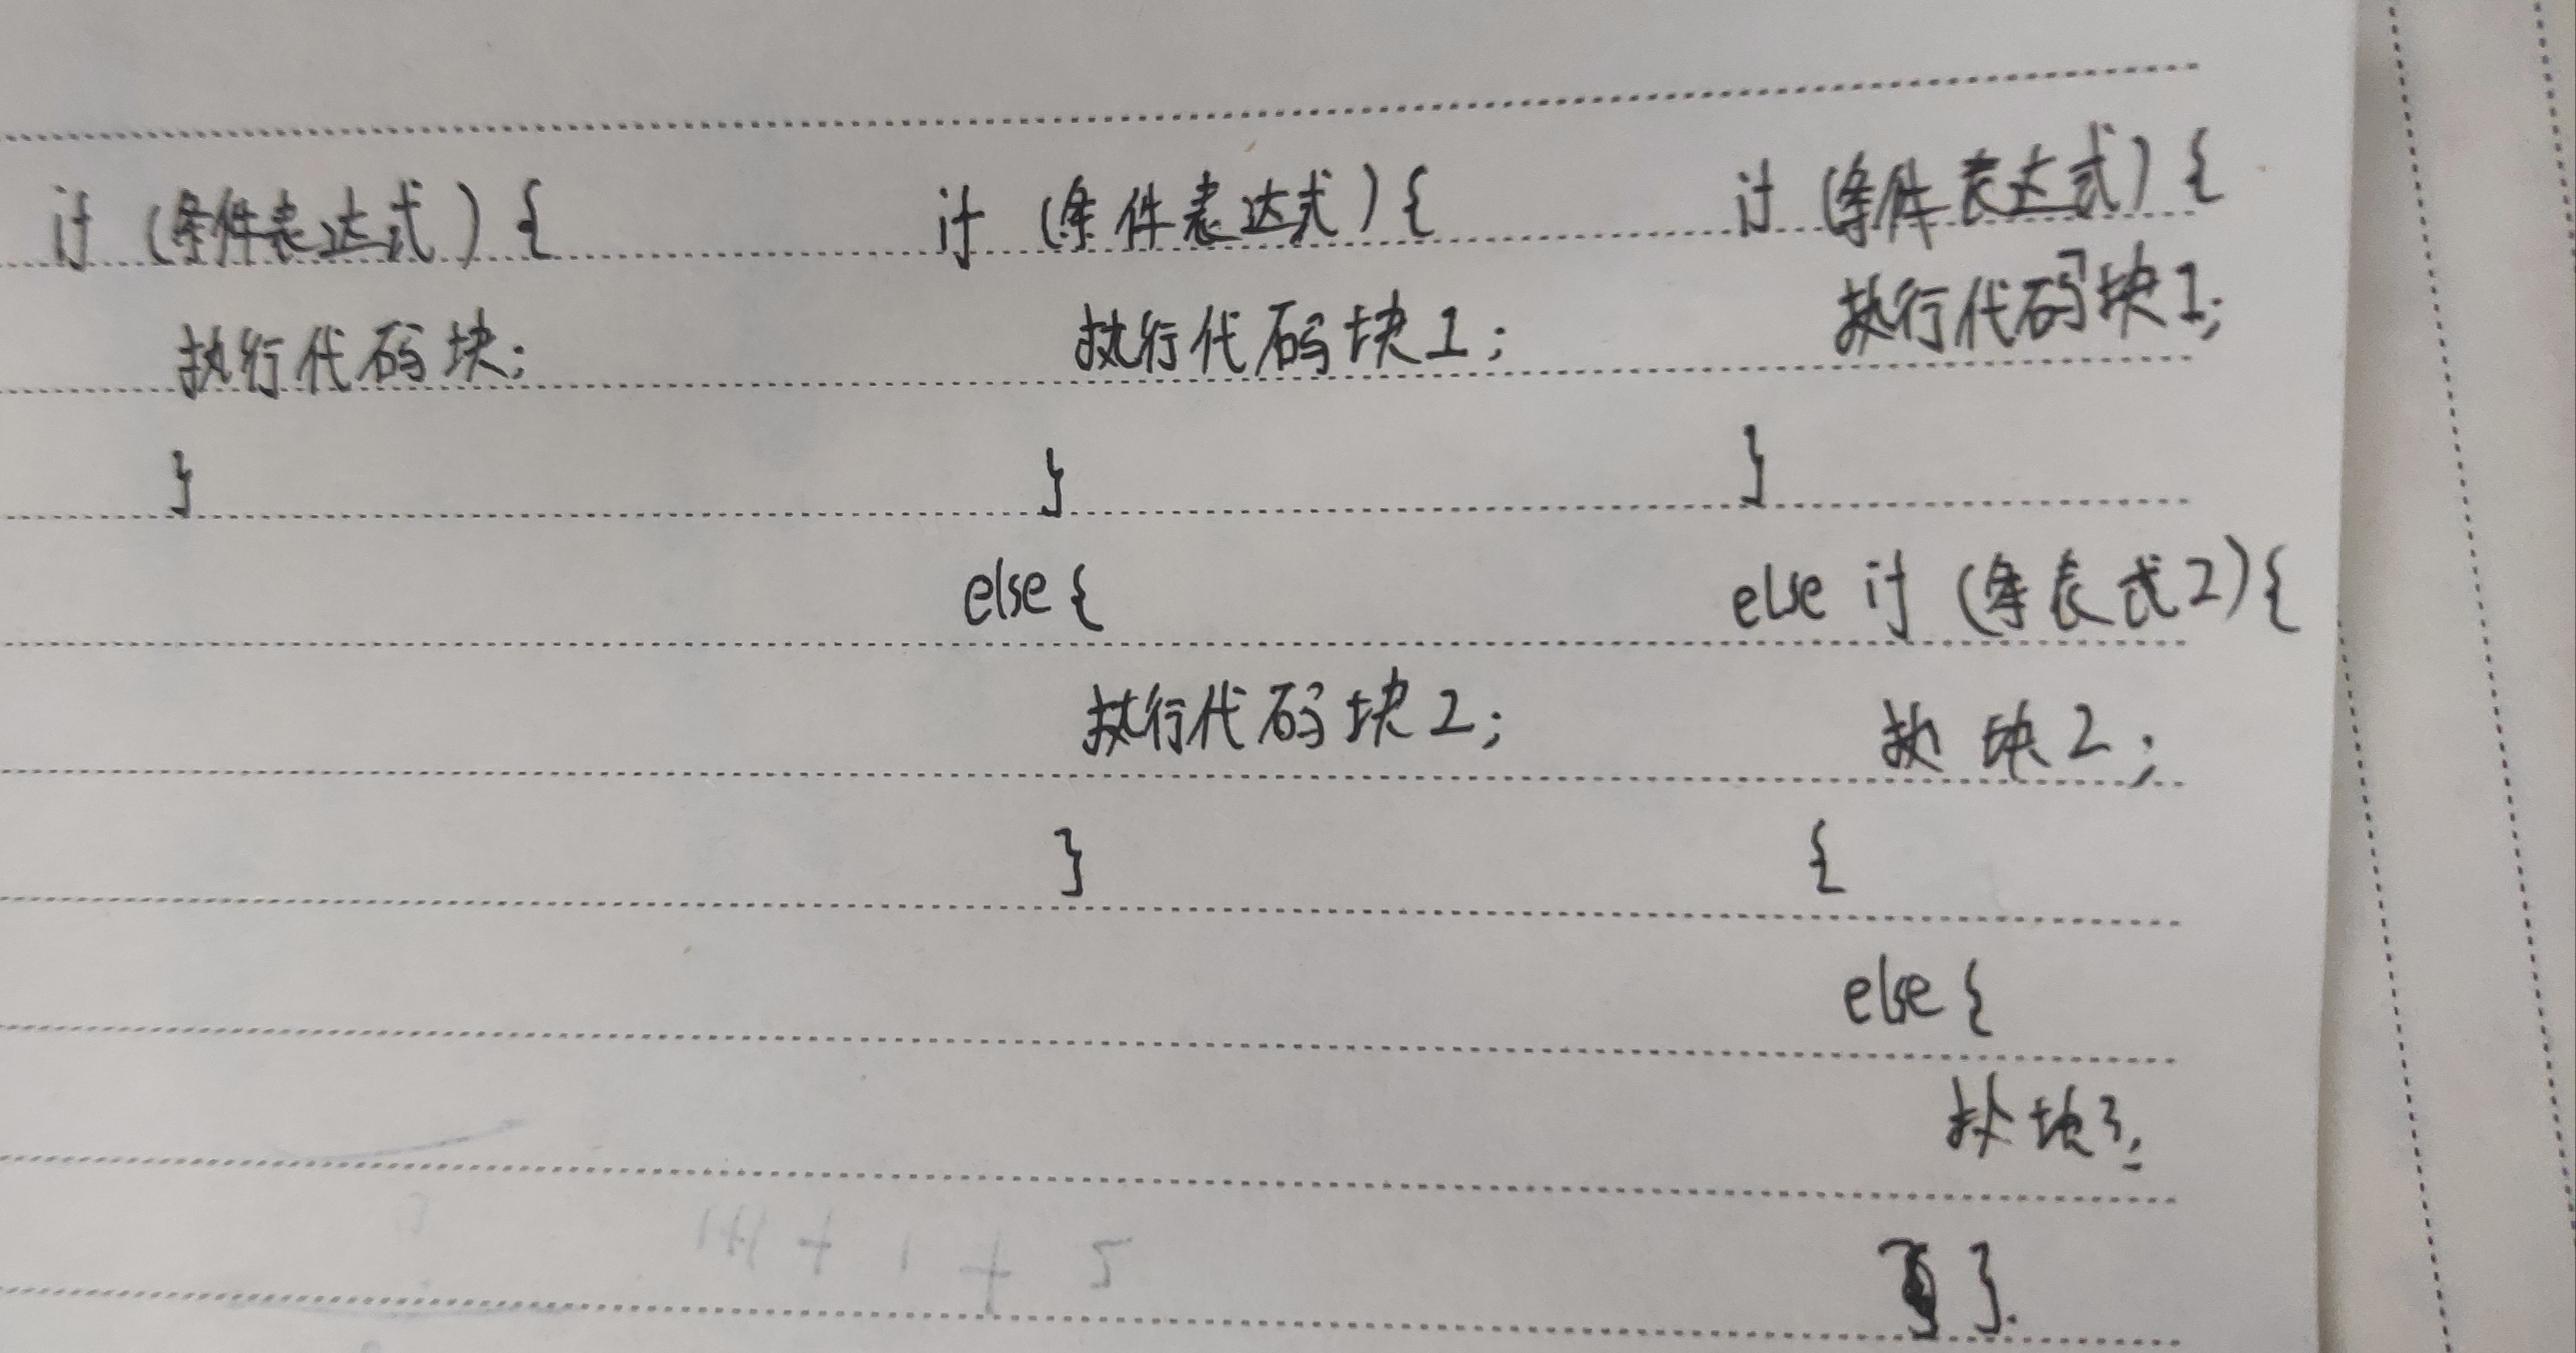 if (条件表达式) {
执行代码块;
}
if (条件表达式) {
执行代码块1;
}
else {
执行代码块2;
}
if (条件表达式) {
执行代码块1;
}
else if (条表式2) {
执 块2;
{
else {
执 块3;
}.